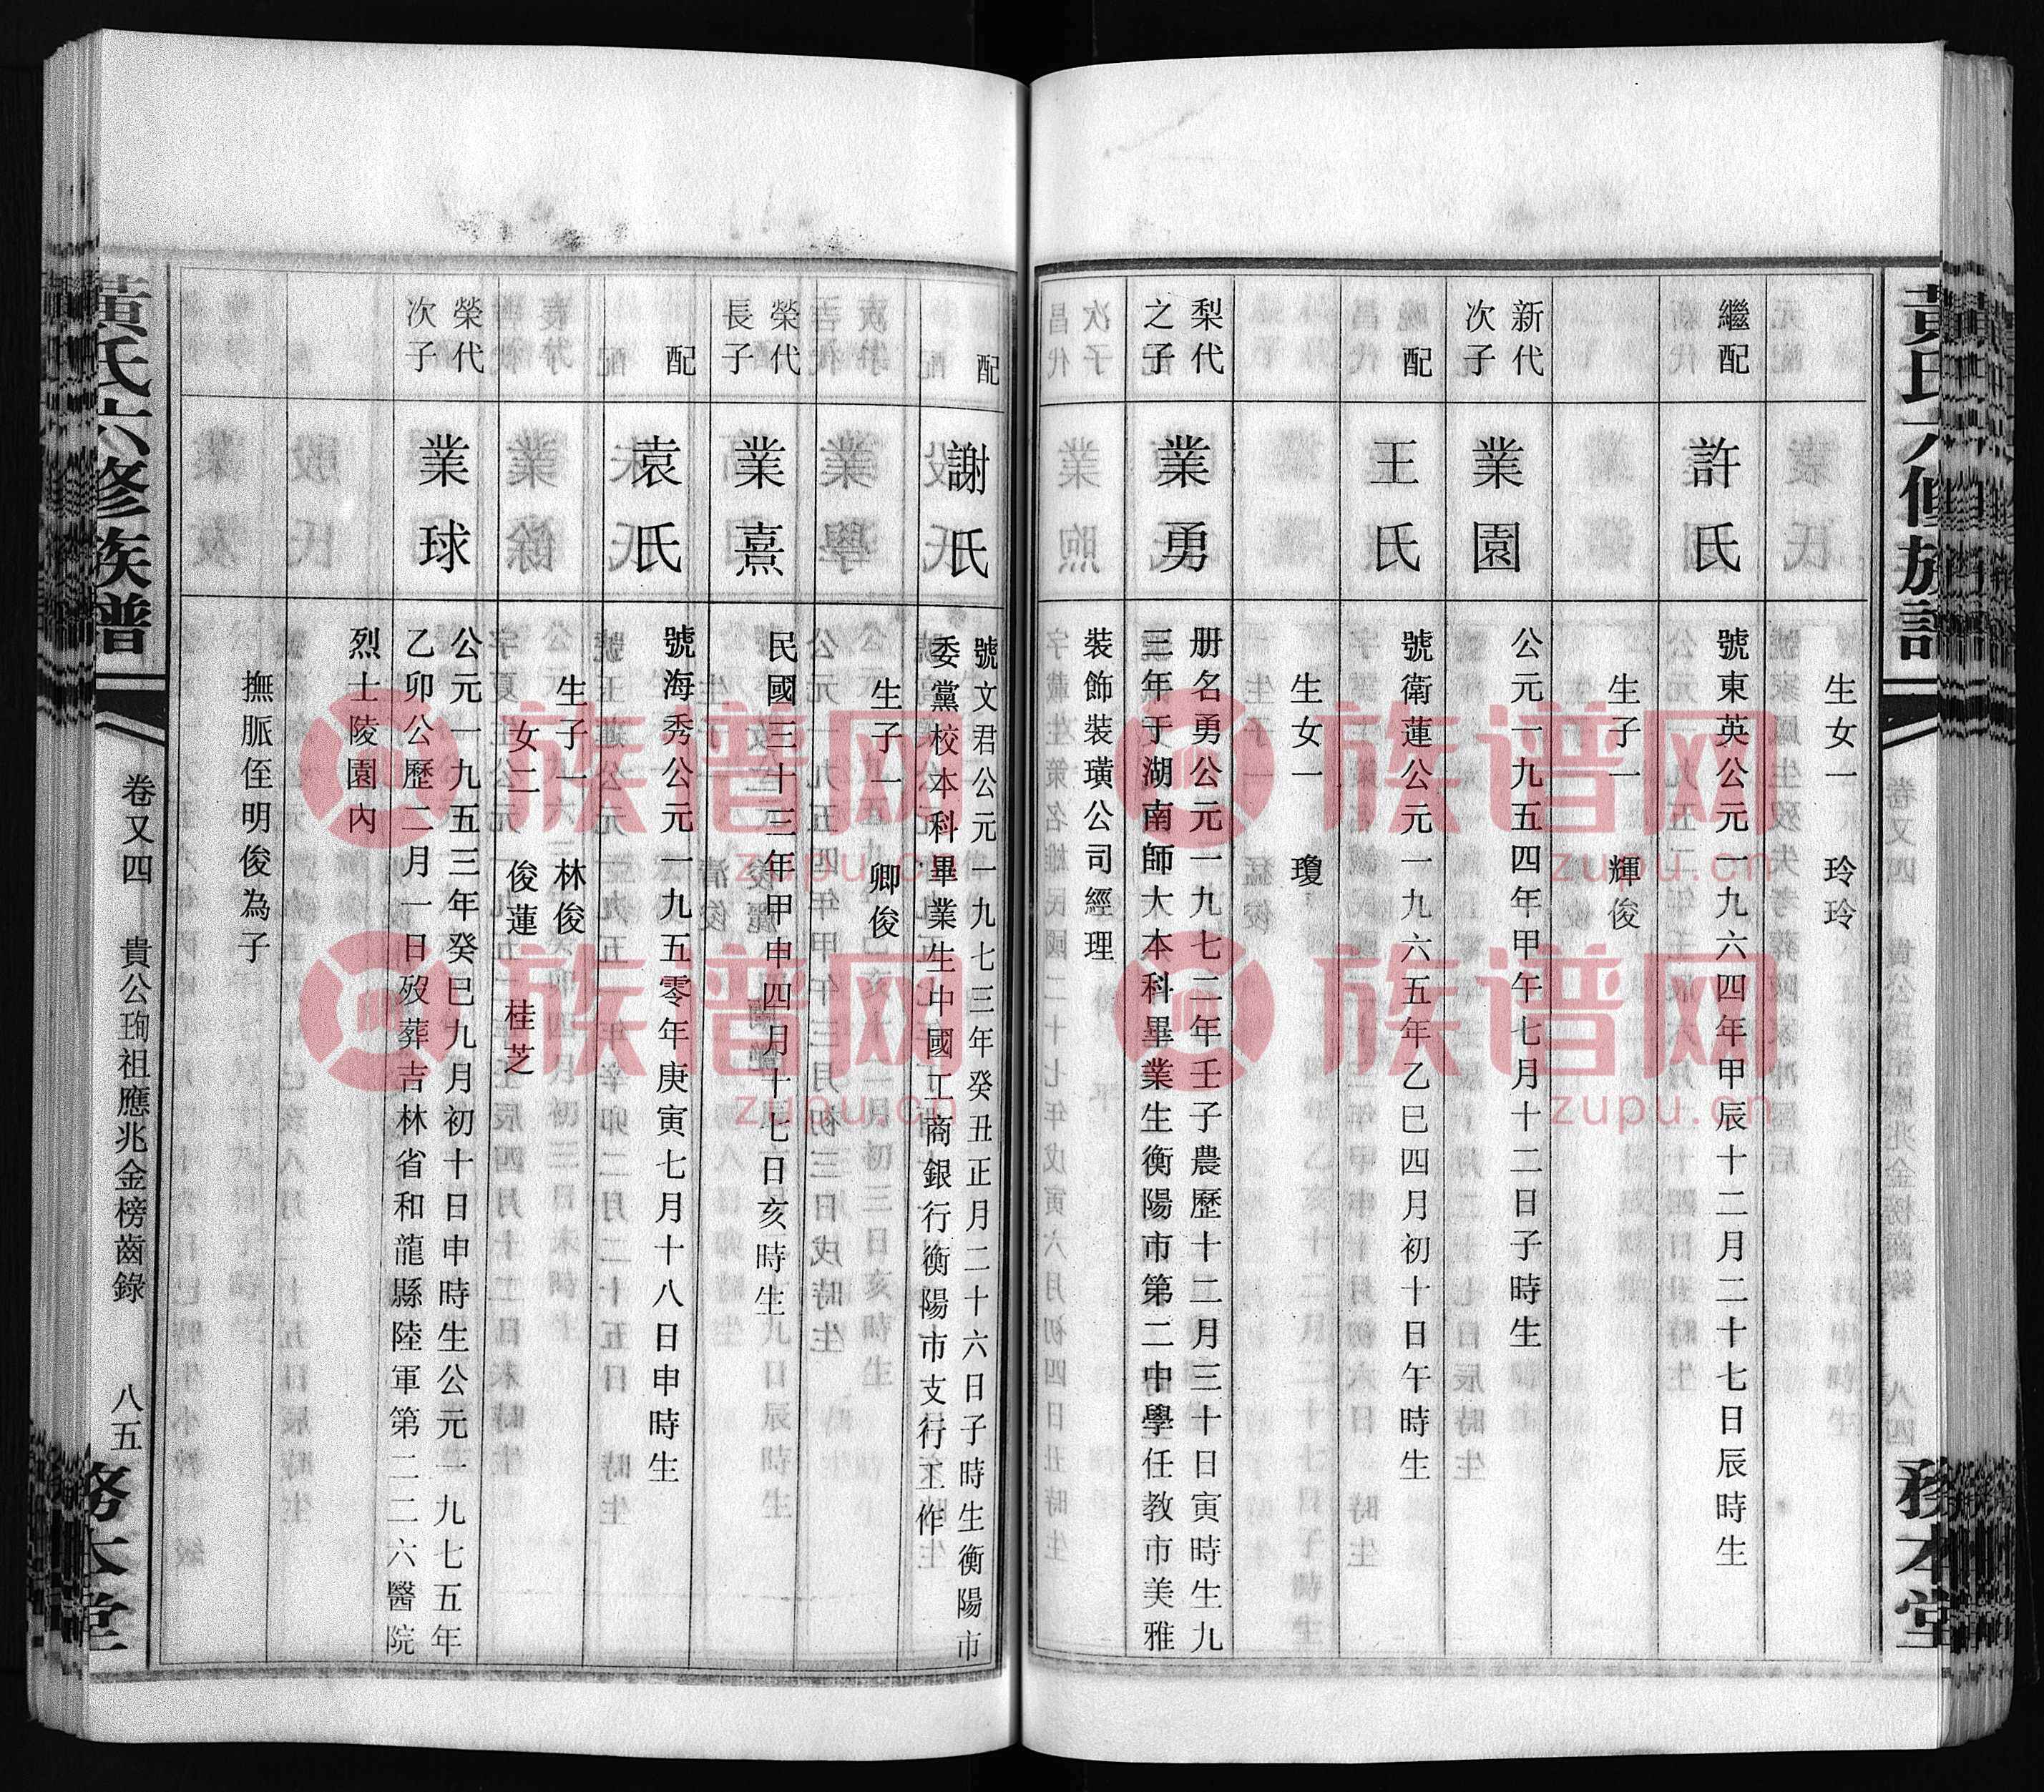 黃氏六修族譜
卷又四
貴公珣祖應兆金榜齒錄
八四
務本堂
生女一 玲玲
繼配
許氏
號東英公元一九六四年甲辰十二月二十七日辰時生
生子一 輝俊
新代
次子
業園
公元一九五四年甲午七月十二日子時生
配
王氏
號衛蓮公元一九六五年乙巳四月初十日午時生
生女一 瓊
梨代
之子
業勇
册名勇公元一九七二年壬子農歷十二月三十日寅時生九
三年于湖南師大本科畢業生衡陽市第二中學任教市美雅
裝飾裝璜公司經理
配
謝氏
號文君公元一九七三年癸丑正月二十六日子時生衡陽市
委黨校本科畢業生中國工商銀行衡陽市支行工作
生子一 卿俊
榮代
長子
業熹
民國三十三年甲申四月十七日亥時生
配
袁氏
號海秀公元一九五零年庚寅七月十八日申時生
生子一 林俊
女二 俊蓮 桂芝
榮代
次子
業球
公元一九五三年癸巳九月初十日申時生公元一九七五年
乙卯公歷二月一日歿葬吉林省和龍縣陸軍第二二六醫院
烈士陵園內
撫脈侄明俊為子
黃氏六修族譜
卷又四
貴公珣祖應兆金榜齒錄
八五
務本堂
族谱网
zupu.cn
族谱网
zupu.cn
族谱网
zupu.cn
族谱网
zupu.cn